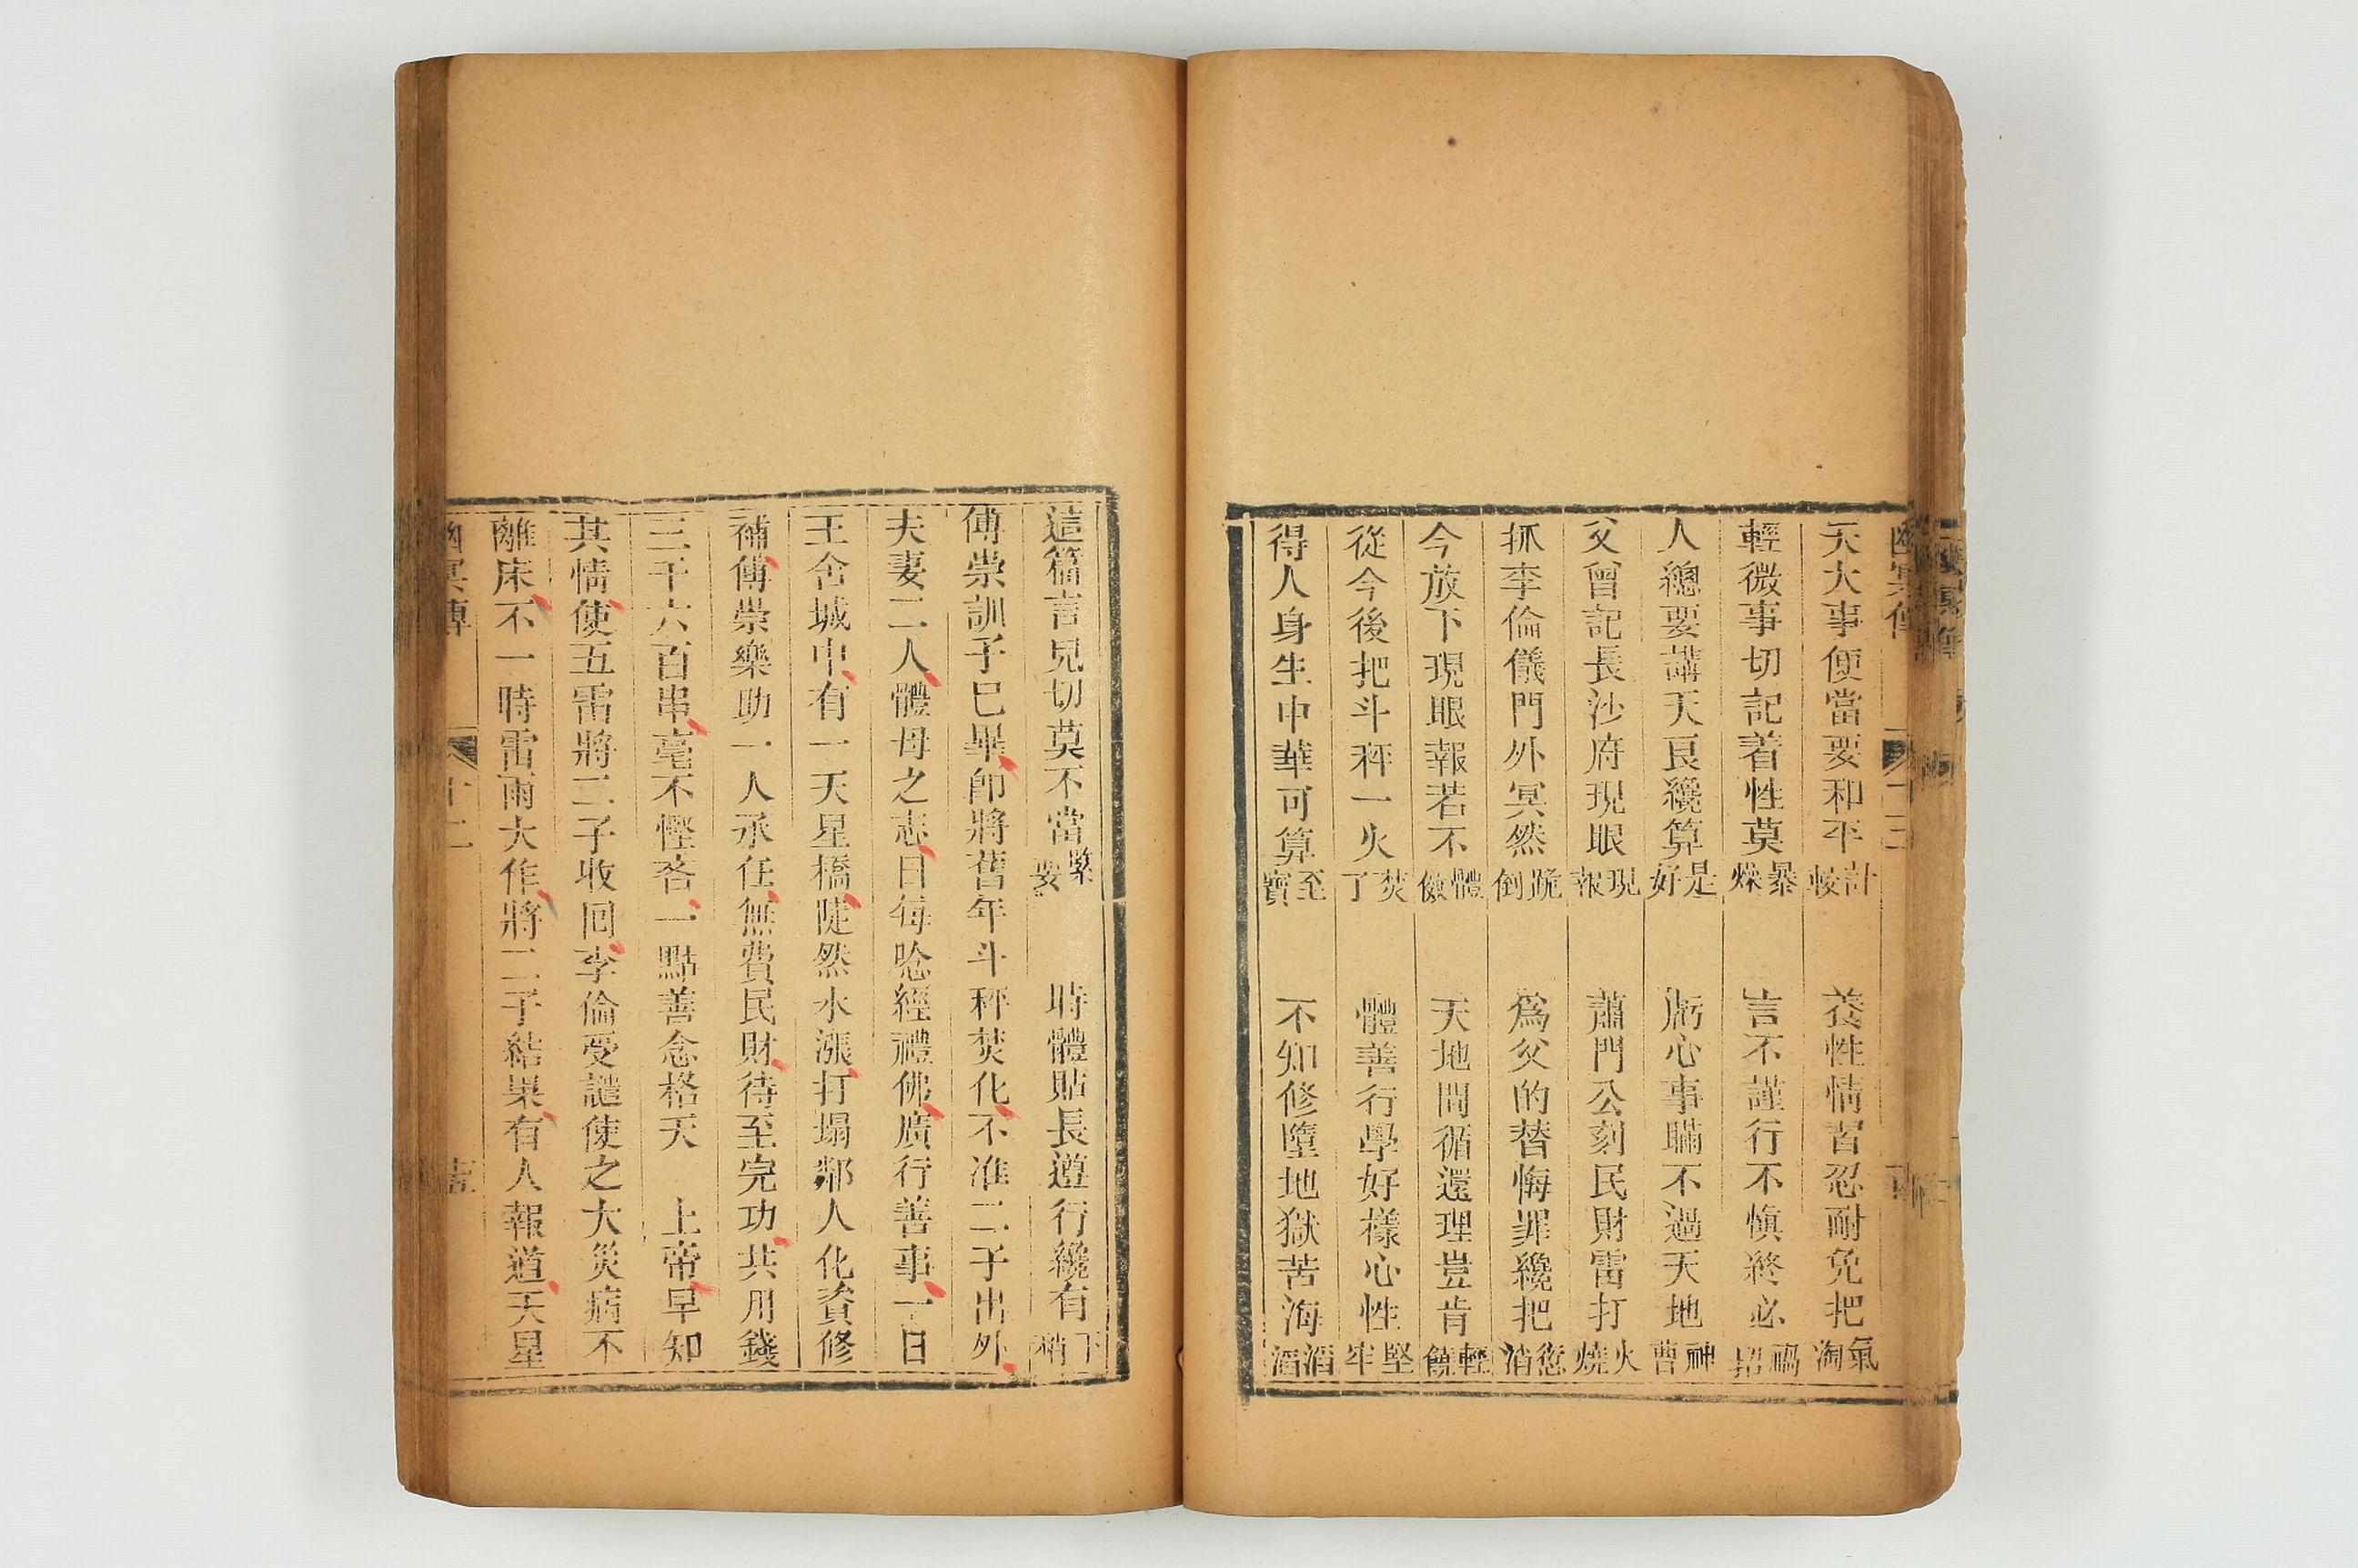 天大事便當要和平計較　養性情習忍耐免把氣淘
輕微事切記着性莫暴燥　言不謹行不愼終必禍招
人總要講天良纔算是好　虧心事瞞不過天地神曹
父曾記長沙府現眼現報　蕭門公刻民財雷打火燒
抓李倫儀門外冥然跪倒　爲父的替悔罪纔把愆消
今放下現眼報若不體儆　天地間循還理豈肯輕饒
從今後把斗秤一火焚了　體善行學好樣心性堅牢
得人身生中華可算至寶　不知修墮地獄苦海滔滔
這篇言兒切莫不當緊要　時體貼長遵行纔有下稍
傅崇訓子已畢卽將舊年斗秤焚化不准二子出外
夫妻二人體母之志日每唸經禮佛廣行善事一日
王舍城中有一天星橋陡然水漲打塌鄰人化資修
補傅崇樂助一人承任無費民財待至完功共用錢
三千六百串毫不慳吝一點善念格天　上帝早知
其情使五雷將二子收回李倫受譴使之大災病不
離床不一時雷雨大作將二子結果有人報道天星
幽冥傳　十二